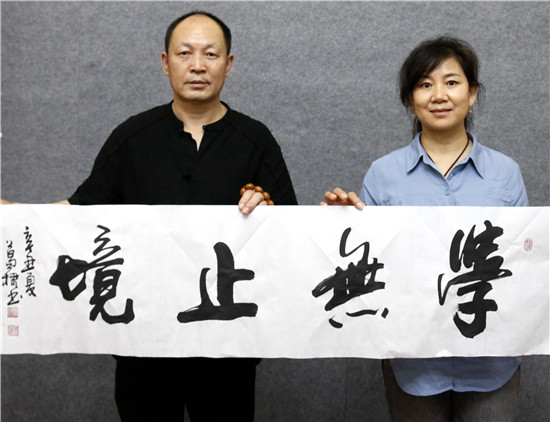 學無止境
辛丑夏